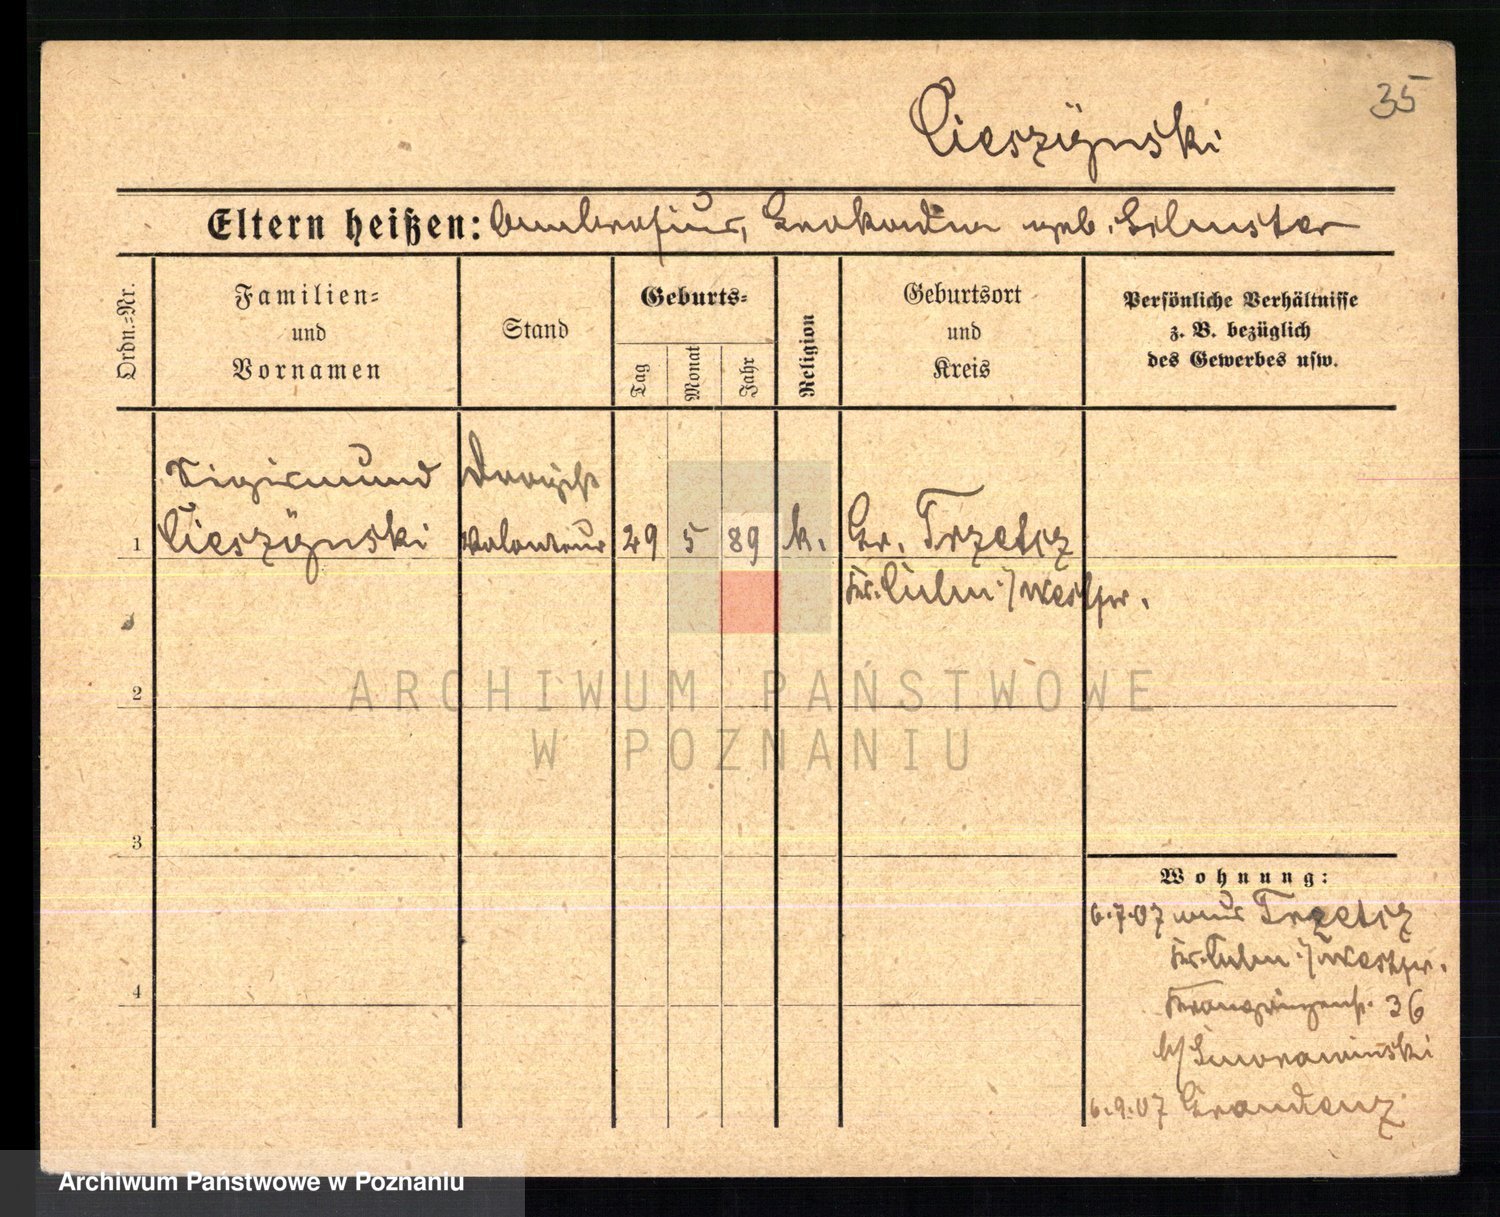 35
Cieszÿnski
Eltern heißen: Ambrosius, Leokadia geb.
Ordn.=Nr.
Familien=
und
Vornamen
Stand
Geburts=
Tag
Monat
Jahr
Religion
Geburtsort
und
Kreis
Persönliche Verhältnisse
z. B. bezüglich
des Gewerbes usw.
Sigismund
Cieszÿnski
Volonteur
1
29
5
89
k.
Gr. Trzebcz
Kr. Culm i/Westpr.
2
3
4
ARCHIWUM PAŃSTWOWE
W POZNANIU
Wohnung:
6.7.07 aus Trzebcz
Kr. Culm i/Westpr.
36
b/
6.9.07 Graudenz
Archiwum Państwowe w Poznaniu